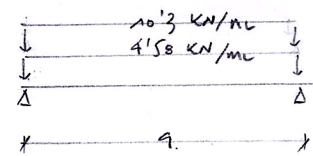 10'3 KN/mL
4'58 KN/mL
9.